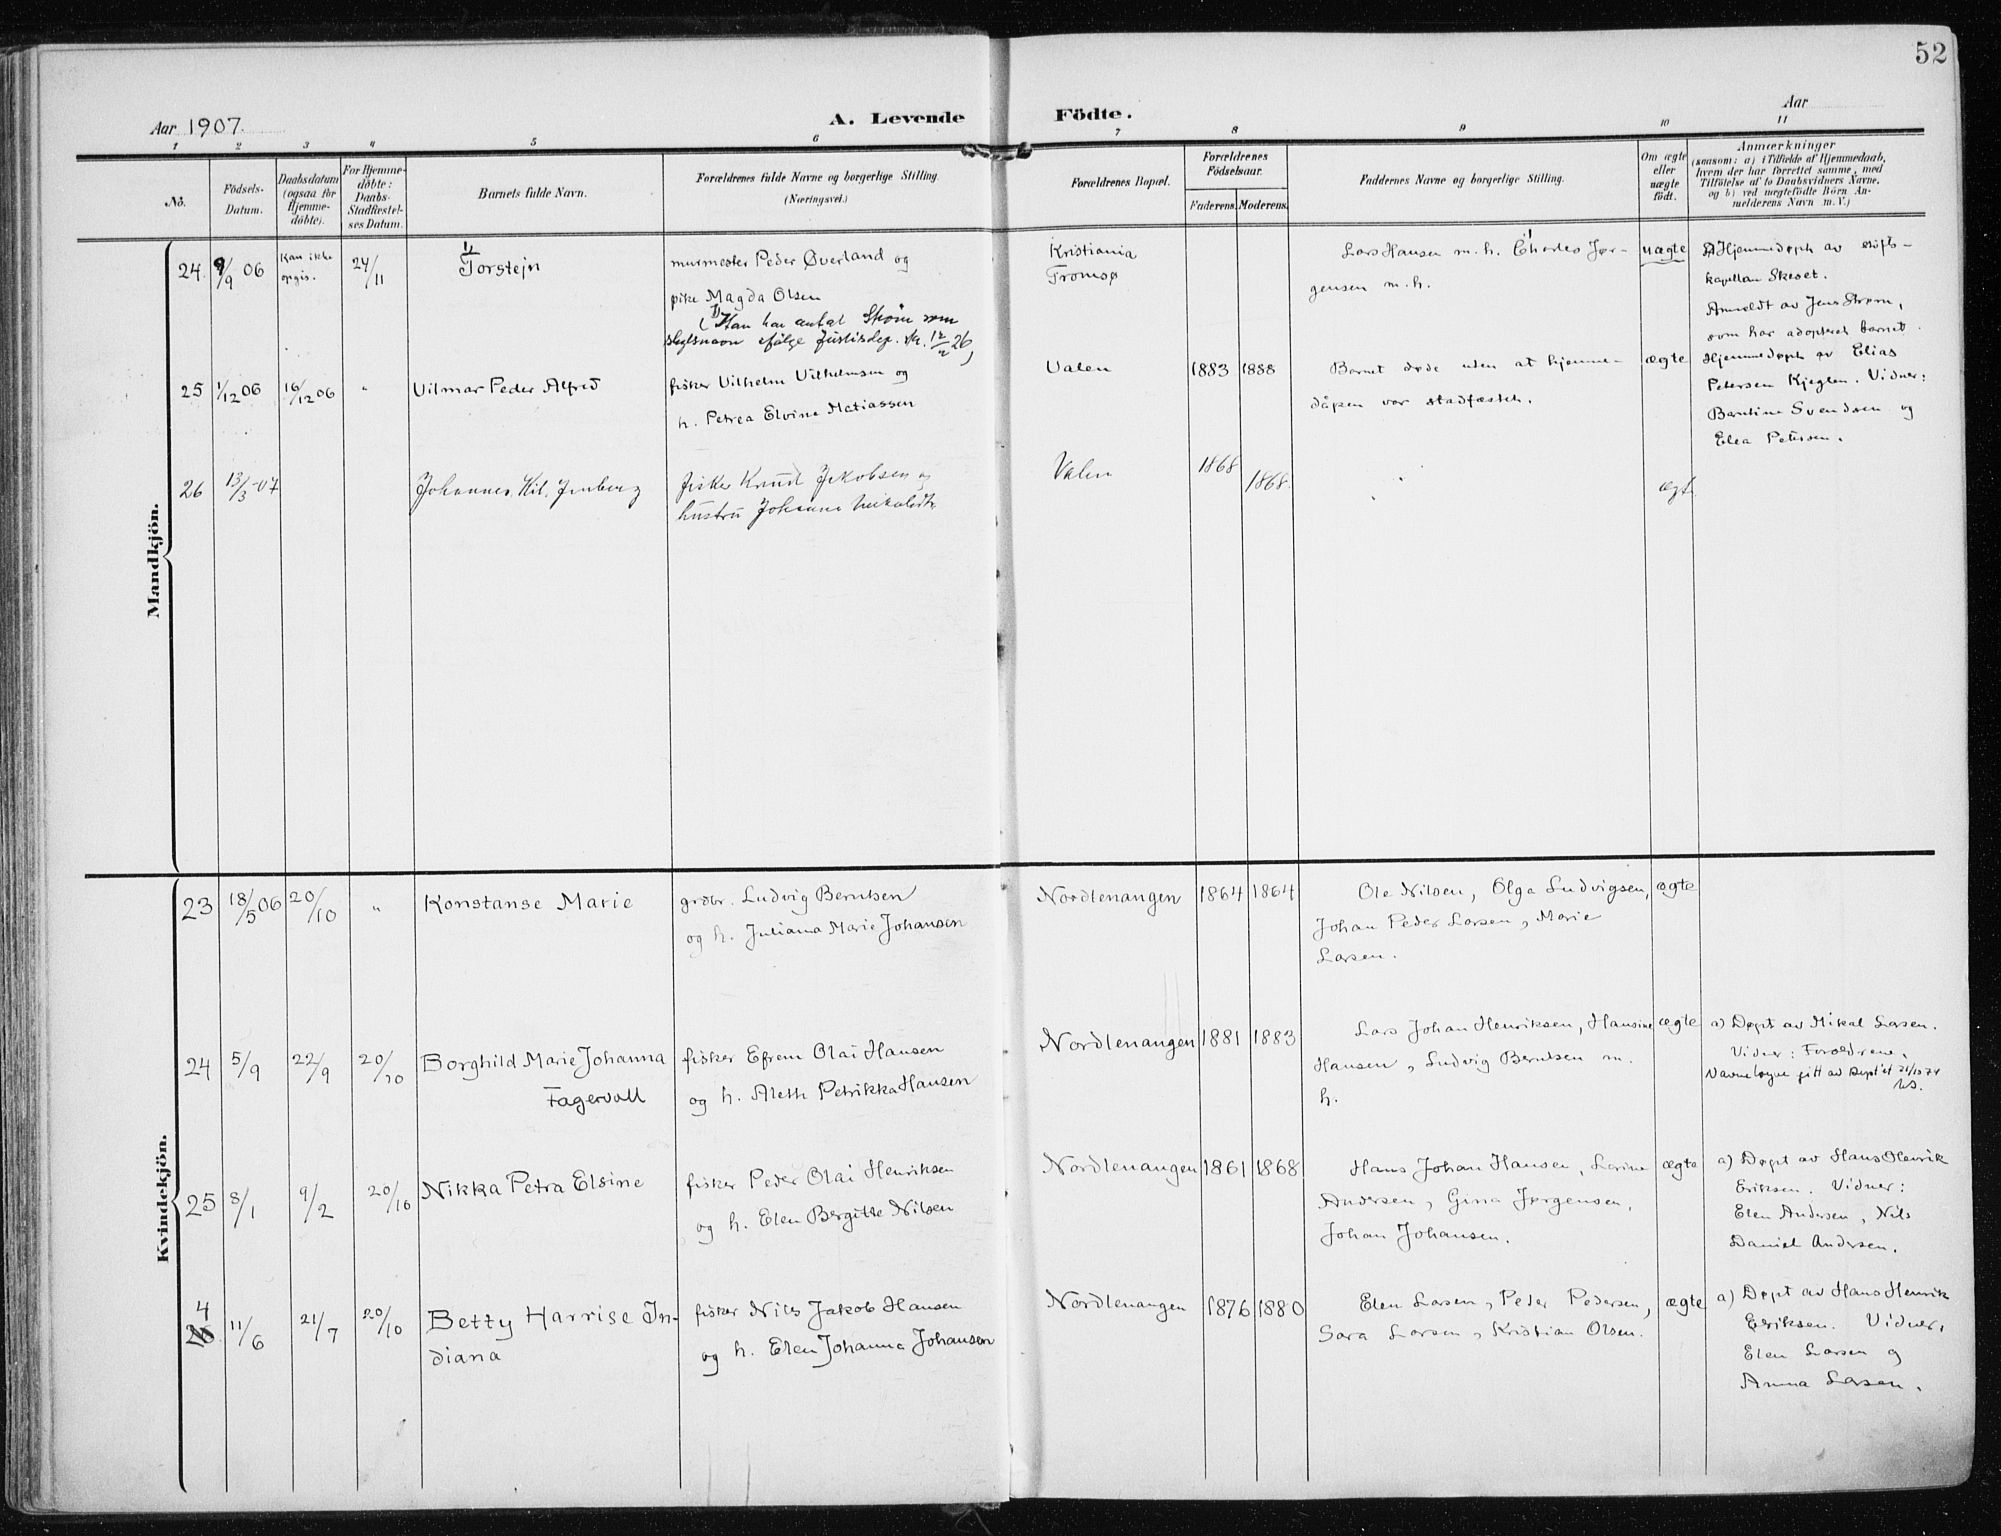 52
Aar 1907.
A. Levende Födte.
Aar
1 2 3 4 5 6 7 8 9 10 11
No.
Födsels-
Datum.
Daabsdatum
(ogsaa for
Hjemme-
döbte).
For Hjemme-
döbte:
Daabs-
Stadfæstel-
ses Datum.
Barnets fulde Navn.
Forældrenes fulde Navne og borgerlige Stilling.
(Næringsvei.)
Forældrenes Bopæl.
Forældrenes
Födselsaar.
Faderens. Moderens.
Faddernes Navne og borgerlige Stilling.
Om ægte
eller
uægte
födt.
Anmærkninger
(saasom: a) i Tilfælde af Hjemmedaab,
hvem der har forrettet samme, med
Tilföielse af to Daabsvidners Navne,
og b) ved uægtefödte Börn An-
melderens Navn m. V.)
Mandkjön.
24. 9/9 06
Kan ikke
opgis.
24/11
1)
Torstejn
murmester Peder Øverland og
pike Magda Olsen
(1) Han har antat Strøm som
slegtsnavn ifølge Justisdep. sk. 12/2 26)
Kristiania
Tromsø
Lars Hansen m. h. Charles Jør-
gensen m. h.
uægte
Hjemmedøpt av stifts-
kapellan Skeset.
Anmeldt av Jens Strøm,
som har adopteret barnet.
25 1/12 06 16/12 06 "
Vilmar Peder Alfred
fisker Vilhelm Vilhelmsen og
h. Petrea Elvine Matiassen
Valen
1883 1888
Barnet døde uden at hjemme-
dåpen var stadfæstet.
ægte
Hjemmedøpt av Elias
Petersen Kjeglen. Vidner:
Berntine Svendsen og
Elea Petersen.
26 13/3-07
Johannes Hil. Jenberg
fisker Knud Jakobsen og
hustru Johanna
Valen
1868 1868.
ægt.
Kvindekjön.
23 18/5 06 20/10 "
Konstanse Marie
grdbr. Ludvig Berntsen
og h. Juliana Marie Johansen
Nordlenangen
1864 1864
Ole Nilsen, Olga Ludvigsen,
Johan Peder Larsen, Marie
Larsen.
ægte
24 5/9 22/9 20/10
Borghild Marie Johanna
Fagervoll
fisker Efrem Olai Hansen
og h. Aleth Petrikka Hansen
Nordlenangen
1881 1883
Lars Johan Henriksen, Hansine
Hansen, Ludvig Berntsen m.
h.
ægte
a) Døpt av Mikal Larsen.
Vidner: Forældrene.
Navnelogne gitt av Dept et 21/10 74
25 8/1 9/2 20/10
Nikka Petra Elsine
fisker Peder Olai Henriksen
og h. Elen Bergitte Nilsen
Nordlenangen
1861 1868
Hans Johan Hansen, Lorine
Andersen, Gina Jørgensen,
Johan Johansen.
ægte
a) Døpt av Hans Henrik
Eriksen. Vidner:
Elen Andersen, Nils
Daniel Andersen.
4
26. 11/6 21/7 20/10
Betty Harrise In-
diana
fisker Nils Jakob Hansen
og h. Elen Johanna Johansen
Nordlenangen
1876 1880
Elen Larsen, Peder Pedersen,
Sara Larsen, Kristian Olsen.
ægte
a) Døpt av Hans Henrik
Eriksen. Vidner:
Elen Larsen og
Anna Larsen.